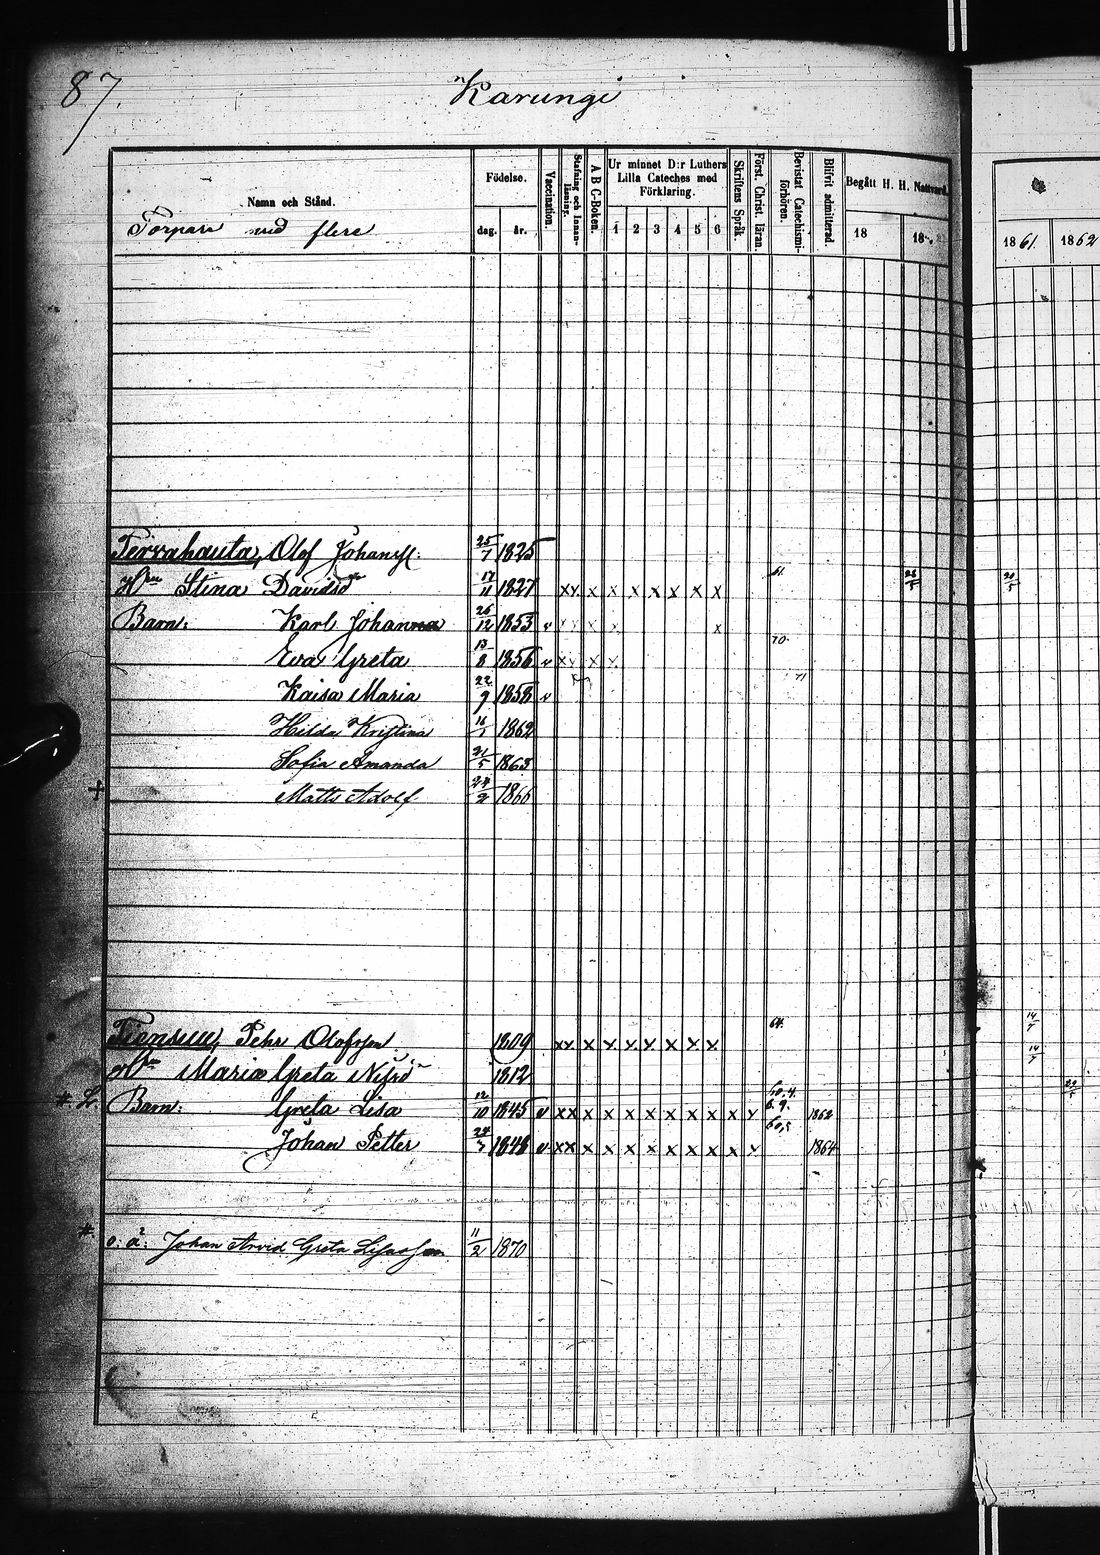 87.
Karungi
Namn och Stånd.
Torpare med flere
Födelse.
dag. år.
Vaccination.
Stafning och Innanläsning.
A B C-Boken.
Ur minnet D:r Luthers Lilla Cateches med Förklaring.
1 2 3 4 5 6
Skriftens Språk.
Först. Christ. läran.
Bevistat Catechismiförhören.
Blifvit admitterad.
Begått H. H. Nattvard.
18 18
1861. 1862
Tervahauta, Olof Johanss. 25/7 1825
Hru Stina Davidsdr 17/11 1827 xx x x x x x x x 61.
Barn: Karl Johan 26/12 1853 v x x x x x
Eva Greta 13/8 1856 v x x x x 70.
Kaisa Maria 22/9 1858 v 71
Hilda Kristina 16/1 1862
Sofia Amanda 21/5 1863
+ Matts Adolf 24/2 1866
Tiensuu, Pehr Olofsson 1809 xx x x x x x x x 64. 14/7
Hru Maria Greta Nilsdr 1812 14/7
#. L. Barn: Greta Lisa 12/10 1845 v xx x x x x x x x x x 60,4. 6.9. 1862
Johan Petter 24/3 1848 v xx x x x x x x x x x 60,5 1864
#. o. ä: Johan Arvid Greta Lisasson 11/2 1870